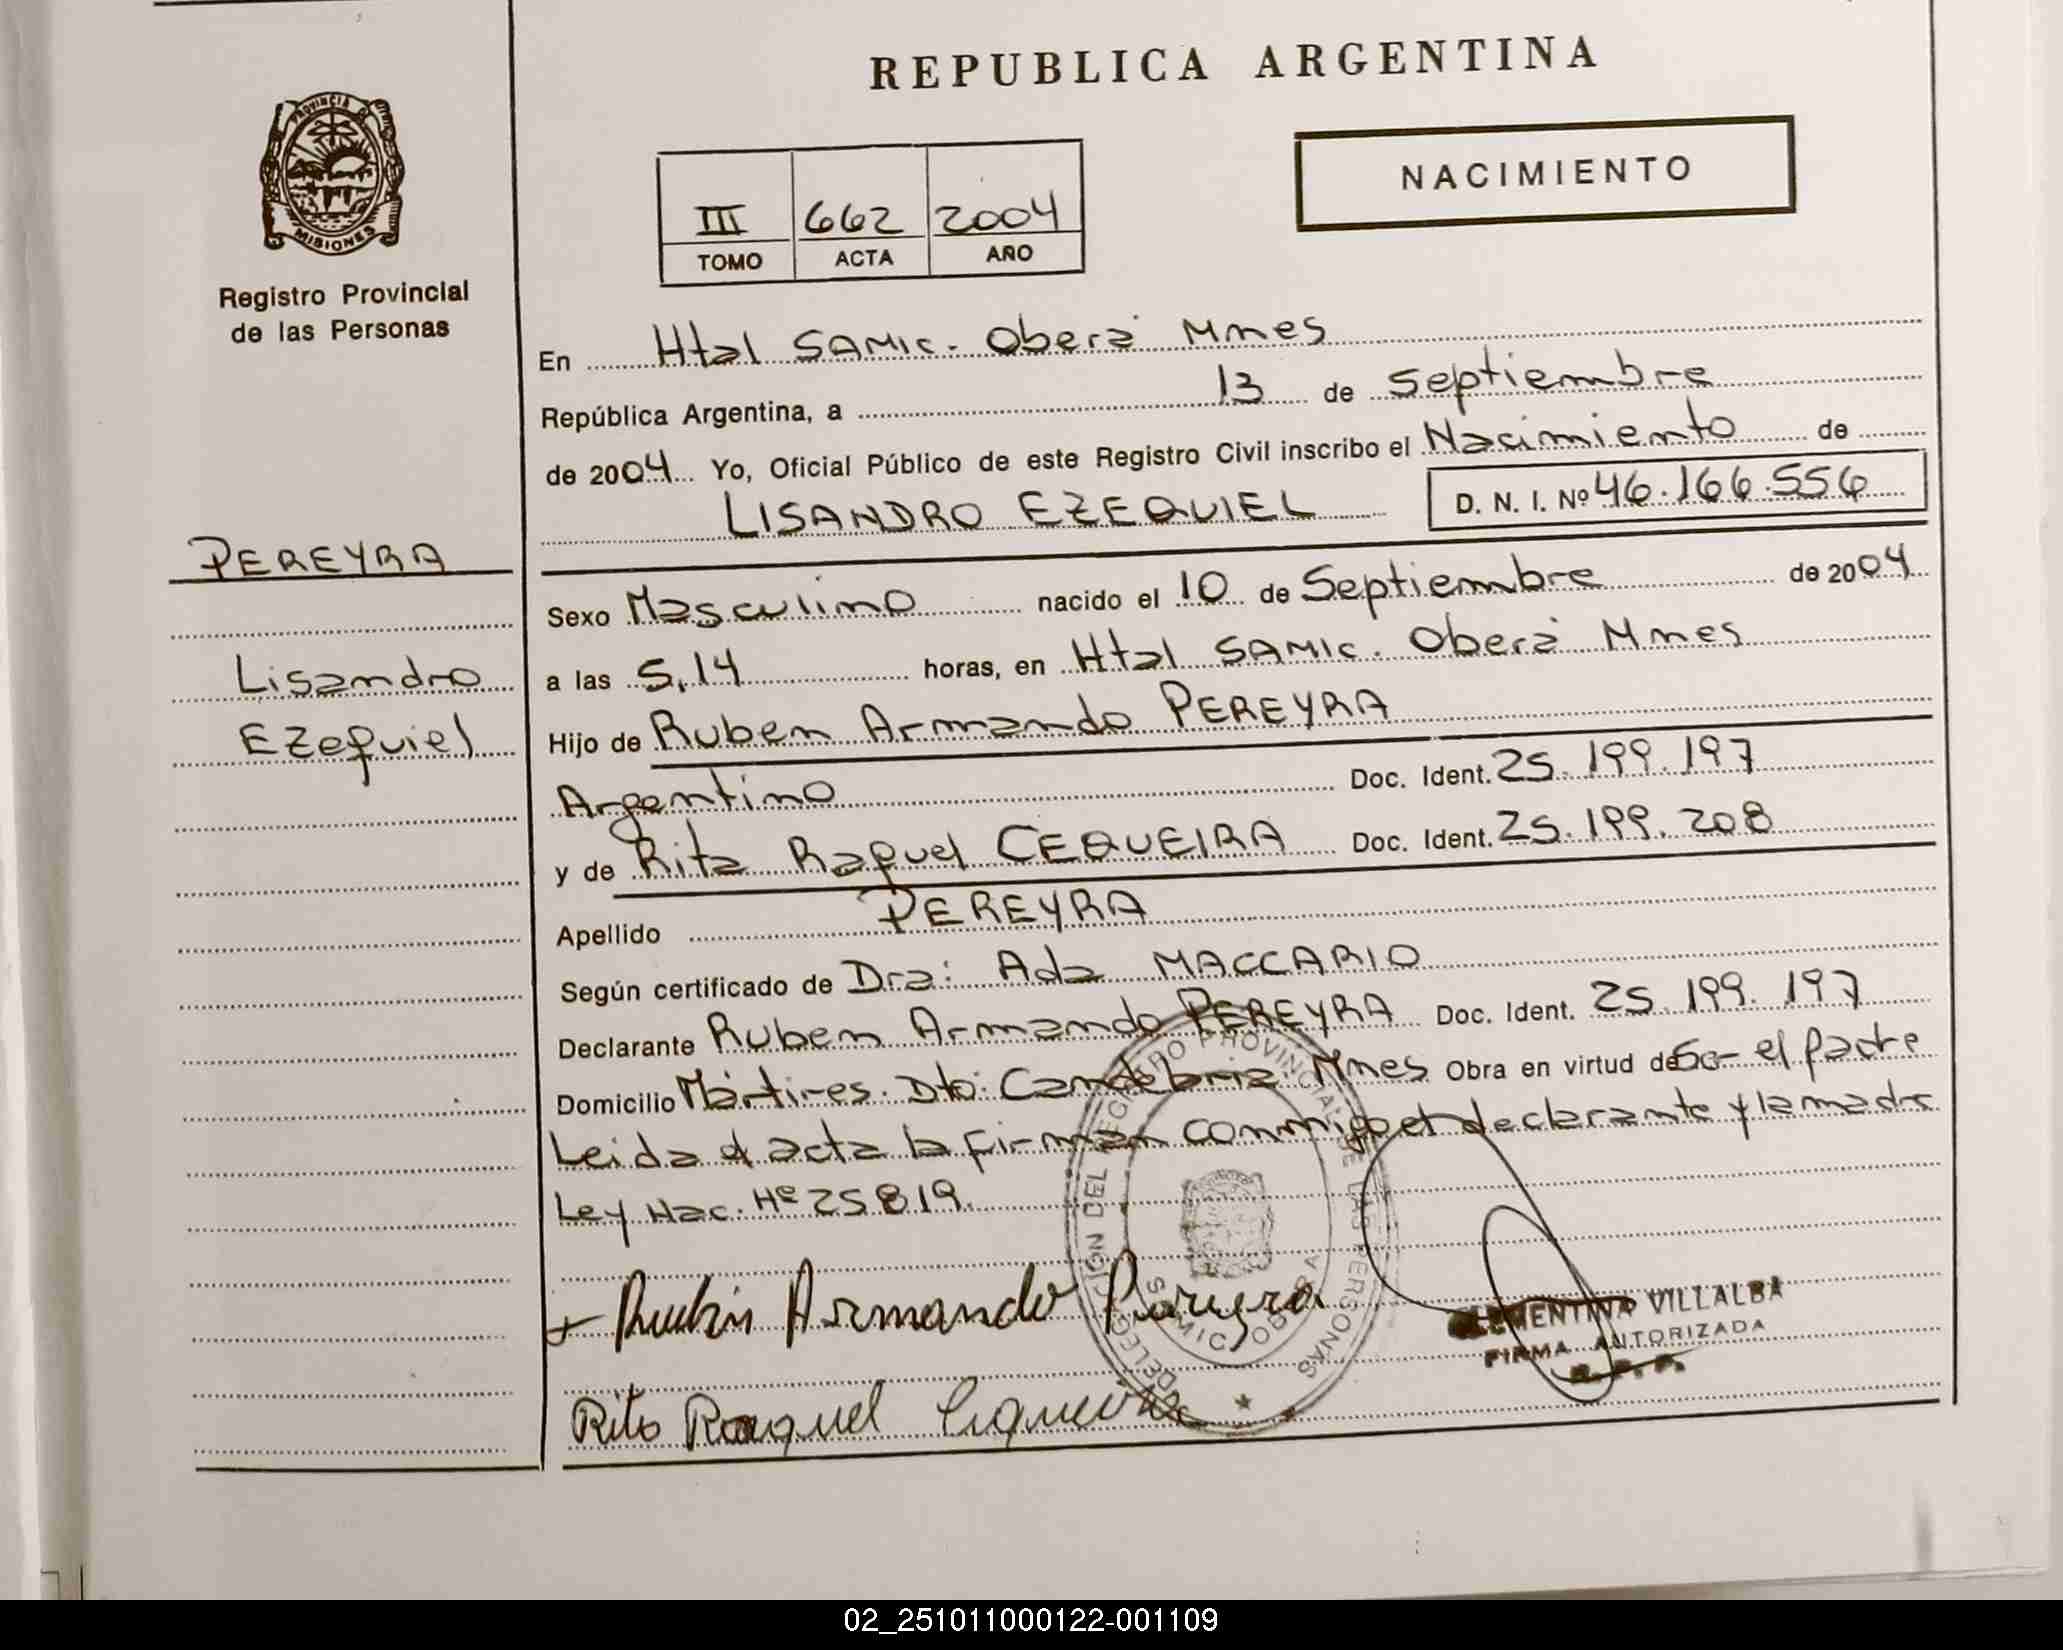 REPUBLICA ARGENTINA
PROVINCIA DE
MISIONES
Registro Provincial
de las Personas
NACIMIENTO
III 662 2004
TOMO ACTA AÑO
En Htal SAMIC. Oberá Mnes
República Argentina, a 13 de Septiembre
de 2004 Yo, Oficial Público de este Registro Civil inscribo el Nacimiento de
LISANDRO EZEQUIEL D. N. I. Nº 46.166.556
PEREYRA
Lisandro
Ezequiel
Sexo Masculino nacido el 10 de Septiembre de 2004
a las 5,14 horas, en Htal SAMIC. Oberá Mnes
Hijo de Ruben Armando PEREYRA
Argentino Doc. Ident. 25.199.197
y de Rita Raquel CEQUEIRA Doc. Ident. 25.199.208
Apellido PEREYRA
Según certificado de Dra: Ada MACCARIO
Declarante Ruben Armando PEREYRA Doc. Ident. 25.199.197
Domicilio Mártires. Dto: Candelaria. Mnes Obra en virtud de Ser el Padre
Leida el acta la firman conmigo el declarante y la madre
Ley Nac. Nº 25819.
DELEGACIÓN DEL REGISTRO PROVINCIAL DE LAS PERSONAS
SAMIC OBERA
Rubén Armando Pereyra
Rita Raquel Ciqueira
CLEMENTINA VILLALBA
FIRMA AUTORIZADA
R. P. P.
02_251011000122-001109